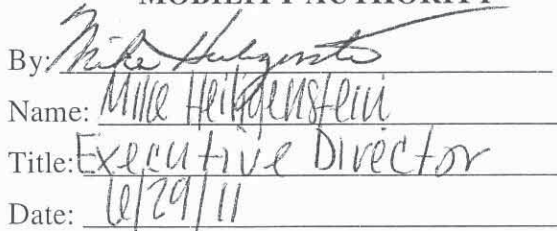 MOBILITY AUTHORITY
By: Mike Heiligenstein
Name: Mike Heiligenstein
Title: Executive Director
Date: 6/29/11